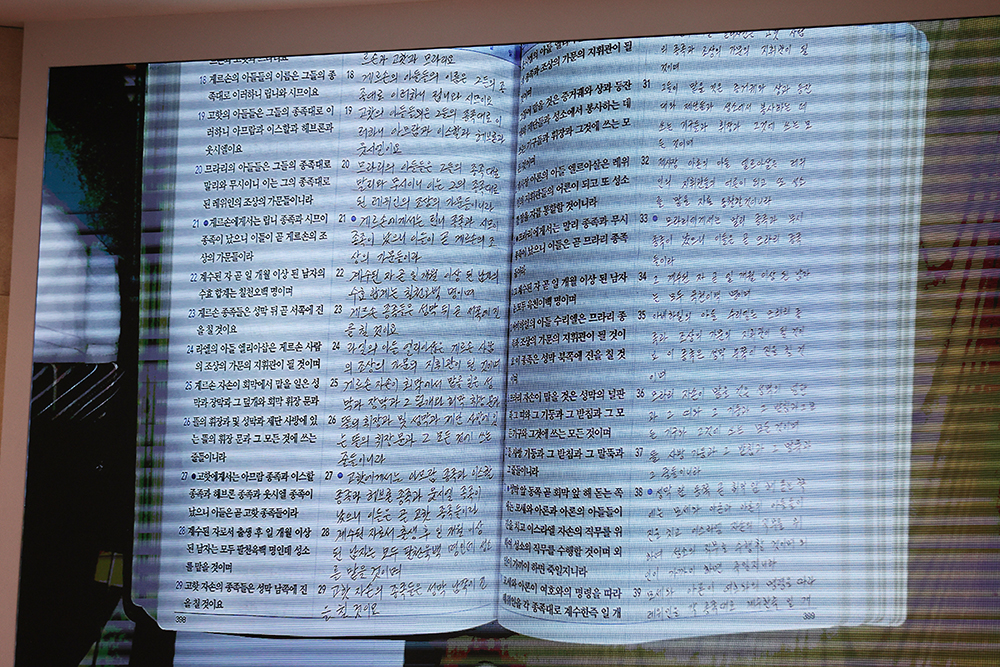 18 게르손의 아들들의 이름은 그들의 종
족대로 이러하니 립니와 시므이요
19 고핫의 아들들은 그들의 종족대로 이
러하니 아므람과 이스할과 헤브론과
웃시엘이요
20 므라리의 아들들은 그들의 종족대로
말리와 무시이니 이는 그의 종족대로
된 레위인의 조상의 가문들이니라
21 ●게르손에게서는 립니 종족과 시므이
종족이 났으니 이들이 곧 게르손의 조
상의 가문들이라
22 계수된 자 곧 일 개월 이상 된 남자의
수효 합계는 칠천오백 명이며
23 게르손 종족들은 성막 뒤 곧 서쪽에 진
을 칠 것이요
24 라엘의 아들 엘리아삽은 게르손 사람
의 조상의 가문의 지휘관이 될 것이며
25 게르손 자손이 회막에서 맡을 일은 성
막과 장막과 그 덮개와 회막 휘장 문과
26 뜰의 휘장과 및 성막과 제단 사방에 있
는 뜰의 휘장 문과 그 모든 것에 쓰는
줄들이니라
27 ●고핫에게서는 아므람 종족과 이스할
종족과 헤브론 종족과 웃시엘 종족이
났으니 이들은 곧 고핫 종족들이라
28 계수된 자로서 출생 후 일 개월 이상
된 남자는 모두 팔천육백 명인데 성소
를 맡을 것이며
29 고핫 자손의 종족들은 성막 남쪽에 진
을 칠 것이요
398
르손과 고핫과 므라리요
18 게르손의 아들들의 이름은 그들의 종
족대로 이러하니 립니와 시므이요
19 고핫의 아들들은 그들의 종족대로 이
러하니 아므람과 이스할과 헤브론과
웃시엘이요
20 므라리의 아들들은 그들의 종족대로
말리와 무시이니 이는 그의 종족대로
된 레위인의 조상의 가문들이니라
21 ●게르손에게서는 립니 종족과 시므이
종족이 났으니 이들이 곧 게르손의 조
상의 가문들이라
22 계수된 자 곧 일 개월 이상 된 남자의
수효 합계는 칠천오백 명이며
23 게르손 종족들은 성막 뒤 곧 서쪽에 진
을 칠 것이요
24 라엘의 아들 엘리아삽은 게르손 사람
의 조상의 가문의 지휘관이 될 것이며
25 게르손 자손이 회막에서 맡을 일은 성
막과 장막과 그 덮개와 회막 휘장 문과
26 뜰의 휘장과 및 성막과 제단 사방에 있
는 뜰의 휘장 문과 그 모든 것에 쓰는
줄들이니라
27 ●고핫에게서는 아므람 종족과 이스할
종족과 헤브론 종족과 웃시엘 종족이
났으니 이들은 곧 고핫 종족들이라
28 계수된 자로서 출생 후 일 개월 이상
된 남자는 모두 팔천육백 명인데 성소
를 맡을 것이며
29 고핫 자손의 종족들은 성막 남쪽에 진
을 칠 것이요
종족과 조상의 가문의 지휘관이 될
맡을 것은 증거궤와 상과 등잔
제단들과 성소에서 봉사하는 데
기구들과 휘장과 그것에 쓰는 모
것이며
아론의 아들 엘르아살은 레위
지휘관들의 어른이 되고 또 성소
맡을 자를 통할할 것이니라
●므라리에게서는 말리 종족과 무시
종족이 났으니 이들은 곧 므라리 종족
계수된 자 곧 일 개월 이상 된 남자
모두 육천이백 명이며
아들 수리엘은 므라리 종
조상의 가문의 지휘관이 될 것이
종족은 성막 북쪽에 진을 칠 것
자손이 맡을 것은 성막의 널판
띠와 그 기둥과 그 받침과 그 모
기구와 그것에 쓰는 모든 것이며
사방 기둥과 그 받침과 그 말뚝과
줄들이니라
성막 앞 동쪽 곧 회막 앞 해 돋는 쪽
모세와 아론과 아론의 아들들이
진을 치고 이스라엘 자손의 직무를 위
성소의 직무를 수행할 것이며 외
가까이 하면 죽일지니라
모세와 아론이 여호와의 명령을 따라
레위인을 각 종족대로 계수한즉 일 개
의 종족과 조상의 가문의 지휘관이 될
것이며
31 그들이 맡을 것은 증거궤와 상과 등잔
대와 제단들과 성소에서 봉사하는 데
쓰는 기구들과 휘장과 그것에 쓰는 모
든 것이며
32 제사장 아론의 아들 엘르아살은 레위
인의 지휘관들의 어른이 되고 또 성소
를 맡을 자를 통할할 것이니라
33 ●므라리에게서는 말리 종족과 무시
종족이 났으니 이들은 곧 므라리 종족
들이라
34 그 계수된 자 곧 일 개월 이상 된 남자
는 모두 육천이백 명이며
35 아비하일의 아들 수리엘은 므라리 종
족과 조상의 가문의 지휘관이 될 것이
요 이 종족은 성막 북쪽에 진을 칠 것
이며
36 므라리 자손이 맡을 것은 성막의 널판
과 그 띠와 그 기둥과 그 받침과 그 모
든 기구와 그것에 쓰는 모든 것이며
37 뜰 사방 기둥과 그 받침과 그 말뚝과
그 줄들이니라
38 ●성막 앞 동쪽 곧 회막 앞 해 돋는 쪽
에는 모세와 아론과 아론의 아들들이
진을 치고 이스라엘 자손의 직무를 위
하여 성소의 직무를 수행할 것이며 외
인이 가까이 하면 죽일지니라
39 모세와 아론이 여호와의 명령을 따라
레위인을 각 종족대로 계수한즉 일 개
399